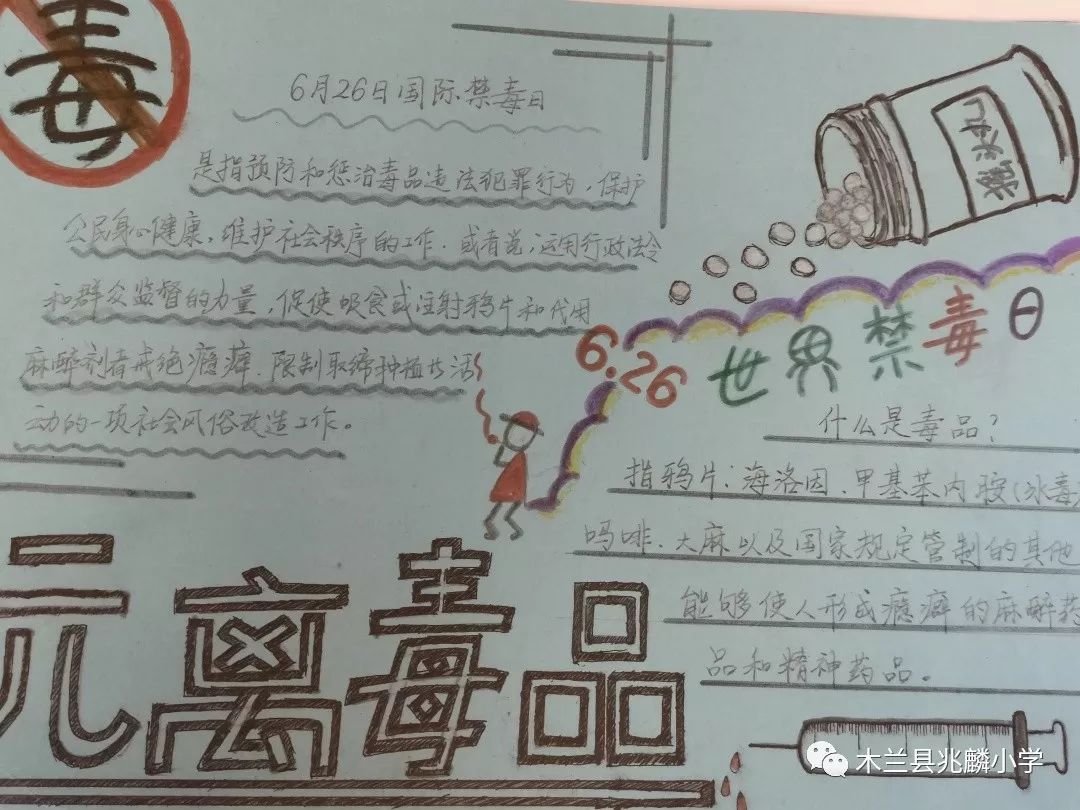 毒
6月26日国际禁毒日
是指预防和惩治毒品违法犯罪行为，保护
公民身心健康，维护社会秩序的工作。或者说，运用行政法令
和群众监督的力量，促使吸食或注射鸦片和代用
麻醉剂者戒绝瘾癖、限制取缔种植及活
动的一项社会风俗改造工作。
6.26世界禁毒日
什么是毒品？
指鸦片：海洛因、甲基苯丙胺（冰毒）
吗啡、大麻以及国家规定管制的其他
能够使人形成瘾癖的麻醉药
品和精神药品。
离毒品
木兰县兆麟小学